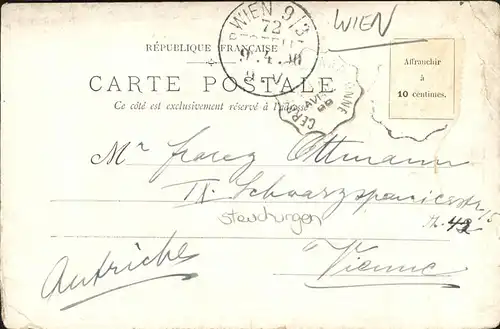 WIEN 9/3
72
9. 4. 00
WIEN
RÉPUBLIQUE FRANÇAISE
Affranchir
à
10 centimes.
CARTE POSTALE
Ce côté est exclusivement réservé à l'adresse
Mr Franz Ottmann
IX. Schwarzspanierstr
Autriche
Vienne